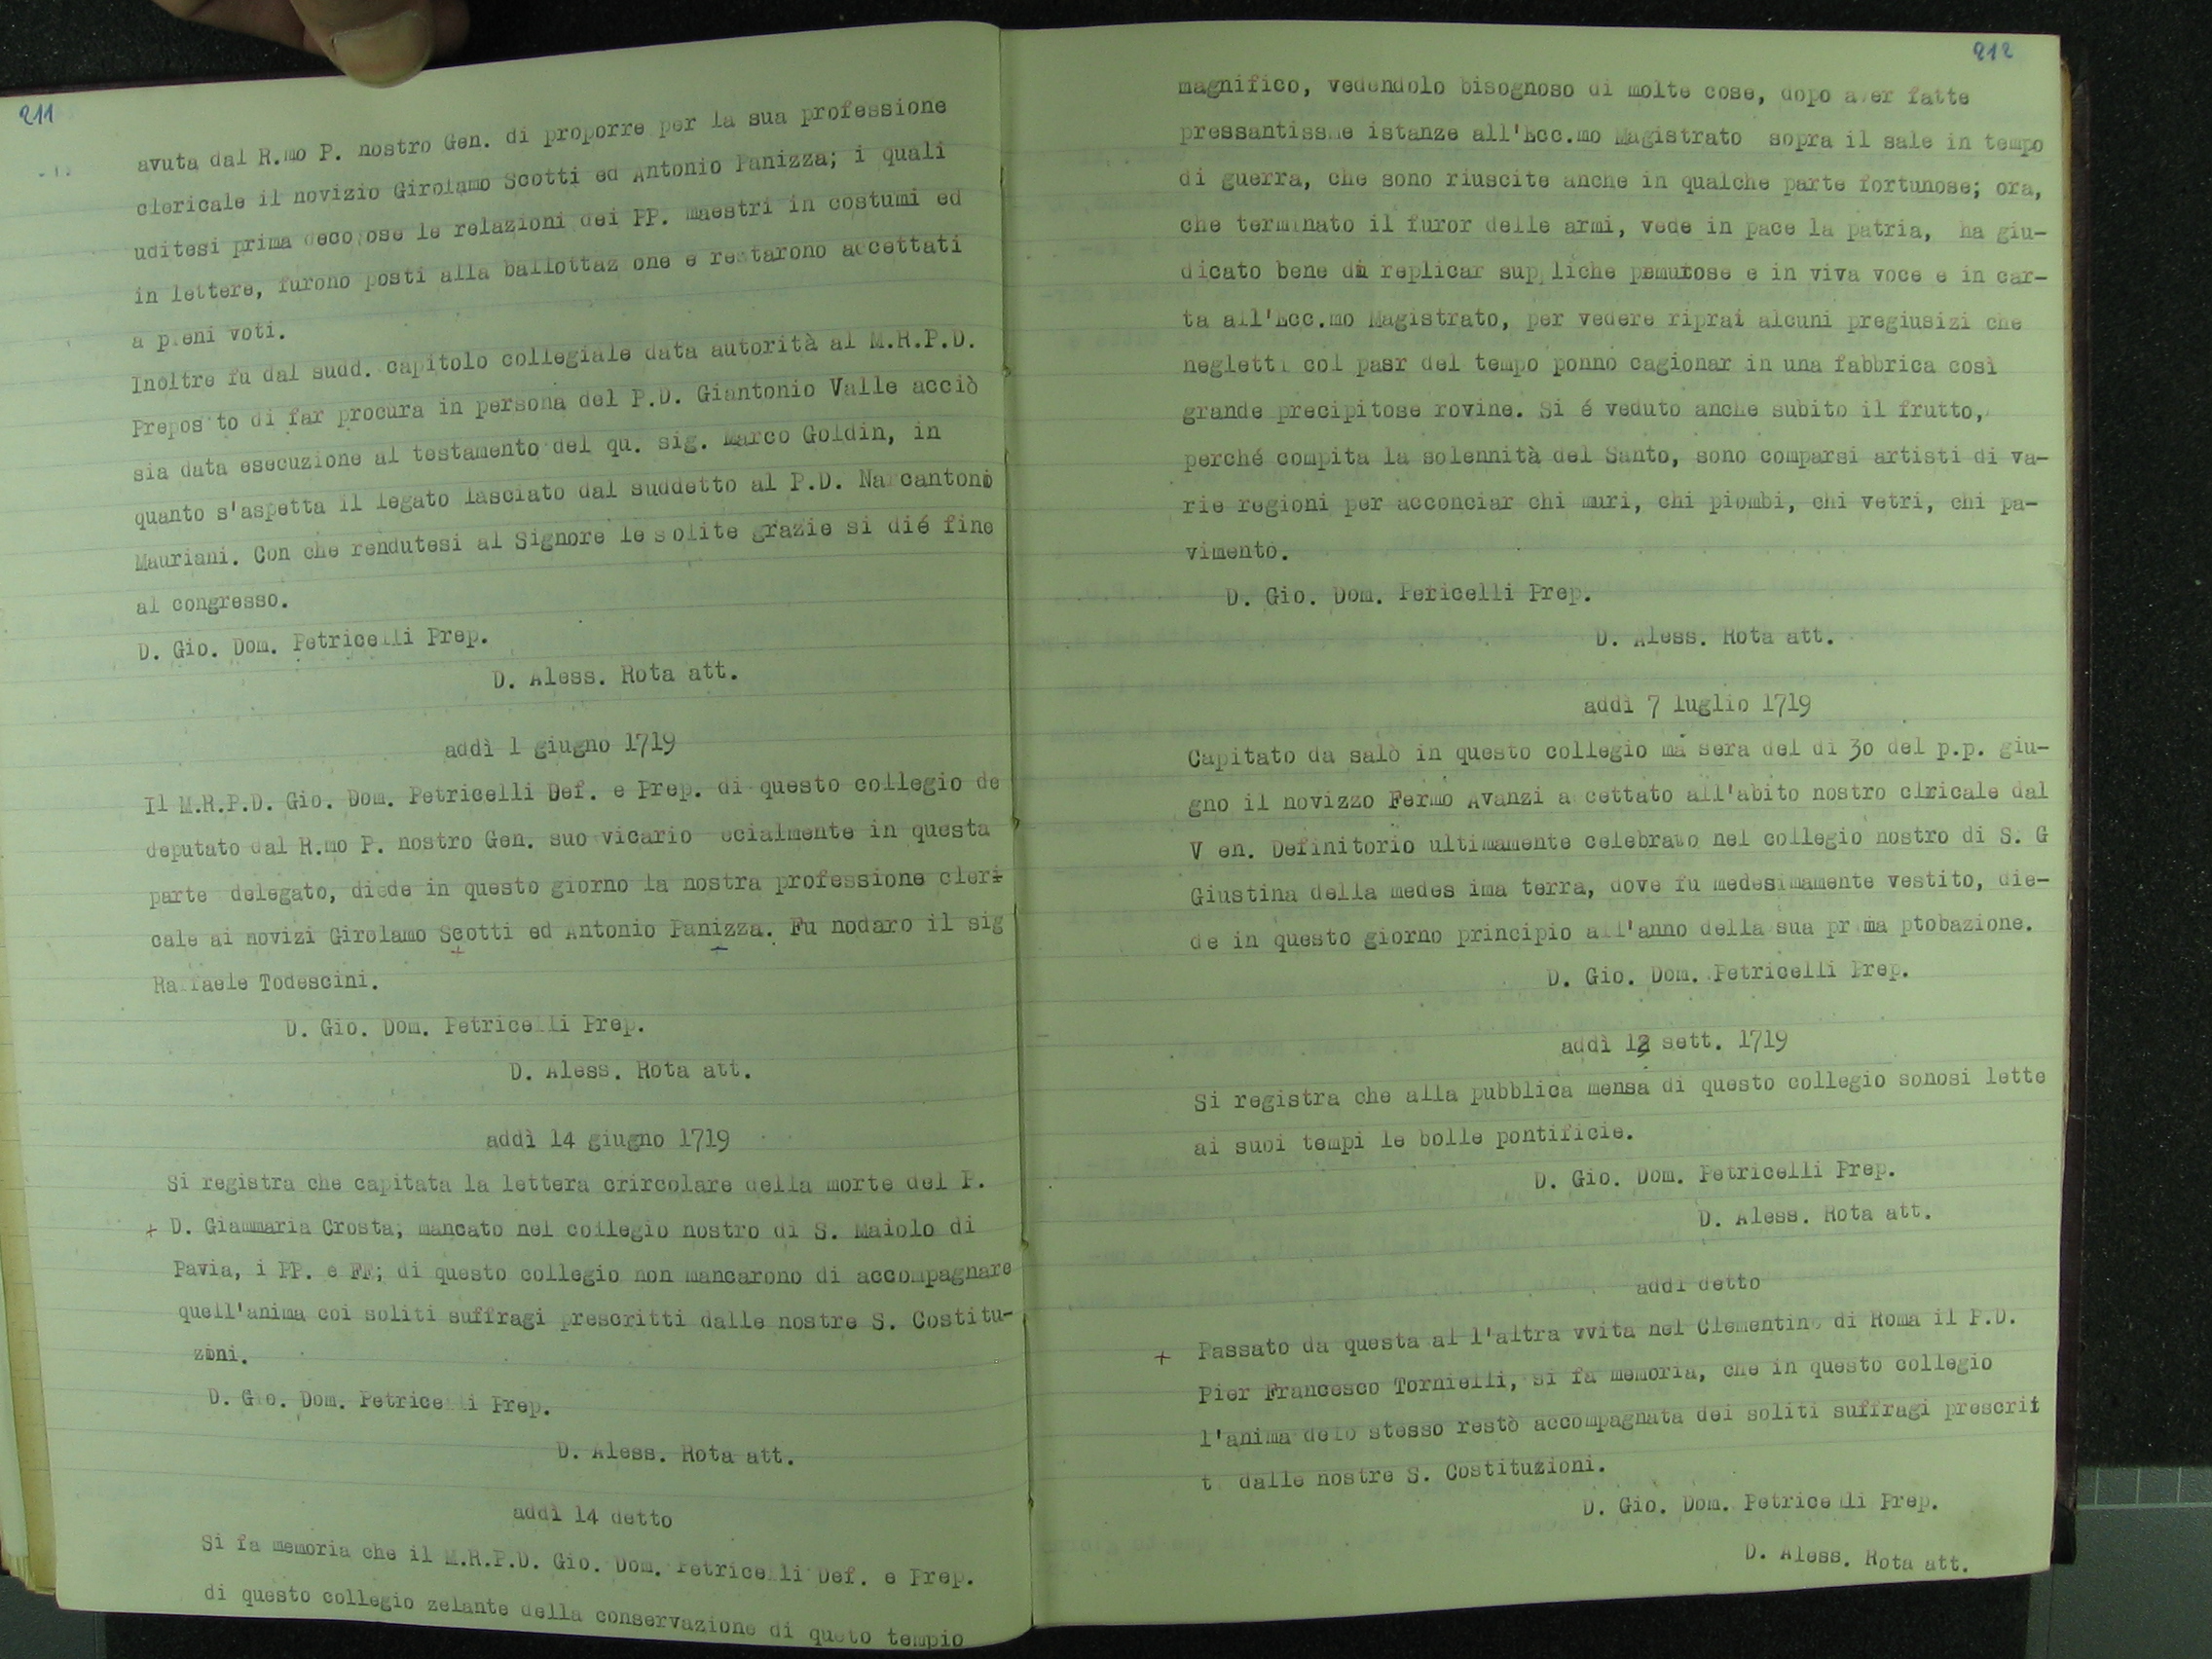 211
avuta dal R.mo P. nostro Gen. di proporre per la sua professione
clericale il novizio Girolamo Scotti ed Antonio Panizza; i quali
uditesi prima decorose le relazioni dei PP. maestri in costumi ed
in lettere, furono posti alla ballottaz one e restarono accettati
a pieni voti.
Inoltre fu dal sudd. capitolo collegiale data autorità al M.R.P.D.
Preposito di far procura in persona del P.D. Giantonio Valle acciò
sia data esecuzione al testamento del qu. sig. Marco Goldin, in
quanto s'aspetta il legato lasciato dal suddetto al P.D. Narcantonio
Mauriani. Con che rendutesi al Signore le solite grazie si dié fine
al congresso.
D. Gio. Dom. Petricelli Prep.
D. Aless. Rota att.
addì 1 giugno 1719
Il M.R.P.D. Gio. Dom. Petricelli Def. e Prep. di questo collegio de
deputato dal R.mo P. nostro Gen. suo vicario ecialmente in questa
parte delegato, diede in questo giorno la nostra professione cleri
cale ai novizi Girolamo Scotti ed Antonio Panizza. Fu nodaro il sig
Raffaele Todescini.
D. Gio. Dom. Petricelli Prep.
D. Aless. Rota att.
addì 14 giugno 1719
Si registra che capitata la lettera crircolare della morte del P.
+ D. Giammaria Crosta, mancato nel collegio nostro di S. Maiolo di
Pavia, i PP. e FF; di questo collegio non mancarono di accompagnare
quell'anima coi soliti suffragi prescritti dalle nostre S. Costitu-
zioni.
D. Gio. Dom. Petricelli Prep.
D. Aless. Rota att.
addì 14 detto
Si fa memoria che il M.R.P.D. Gio. Dom. Petricelli Def. e Prep.
di questo collegio zelante della conservazione di queto tempio
212
magnifico, vedendolo bisognoso di molte cose, dopo aver fatte
pressantissme istanze all'Ecc.mo Magistrato sopra il sale in tempo
di guerra, che sono riuscite anche in qualche parte fortunose; ora,
che terminato il furor delle armi, vede in pace la patria, ha giu-
dicato bene di replicar suppliche premurose e in viva voce e in car-
ta all'Ecc.mo Magistrato, per vedere riprai alcuni pregiusizi che
negletti col pasr del tempo ponno cagionar in una fabbrica così
grande precipitose rovine. Si é veduto anche subito il frutto,
perché compita la solennità del Santo, sono comparsi artisti di va-
rie regioni per acconciar chi muri, chi piombi, chi vetri, chi pa-
vimento.
D. Gio. Dom. Pericelli Prep.
D. Aless. Rota att.
addì 7 luglio 1719
Capitato da salò in questo collegio ma sera del di 30 del p.p. giu-
gno il novizzo Fermo Avanzi accettato all'abito nostro clricale dal
V en. Definitorio ultimamente celebrato nel collegio nostro di S. G
Giustina della medes ima terra, dove fu medesimamente vestito, die-
de in questo giorno principio all'anno della sua prima ptobazione.
D. Gio. Dom. Petricelli Prep.
addì 12 sett. 1719
Si registra che alla pubblica mensa di questo collegio sonosi lette
ai suoi tempi le bolle pontificie.
D. Gio. Dom. Petricelli Prep.
D. Aless. Rota att.
addì detto
+ Passato da questa al l'altra vvita nel Clementino di Roma il P.D.
Pier Francesco Tornielli, si fa memoria, che in questo collegio
l'anima delo stesso restò accompagnata dei soliti suffragi prescrit
ti dalle nostre S. Costituzioni.
D. Gio. Dom. Petricelli Prep.
D. Aless. Rota att.